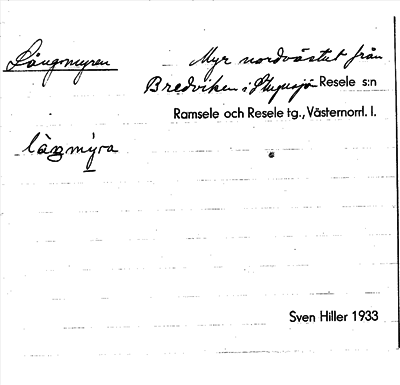 Långmyren
Myr nordvästut från
Bredviken i Stugusjö Resele s:n
Ramsele och Resele tg., Västernorrl. l.
låŋmýra
Sven Hiller 1933